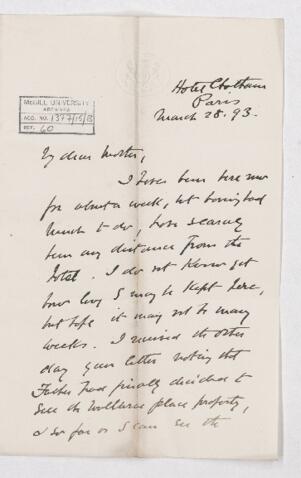 McGILL UNIVERSITY
ARCHIVES
ACC. NO. 1377/15/B
REF. 60
Hotel Chatham
Paris
March 28. 93.
My dear Mother,
I have been here now
for about a week, but having had
much to do, have scarcely
been any distance from the
hotel. I do not know yet
how long I may be kept here,
but hope it may not be many
weeks. I received the other
day your letter noting that
Father had finally decided to
see the place property,
& so far as I can see the